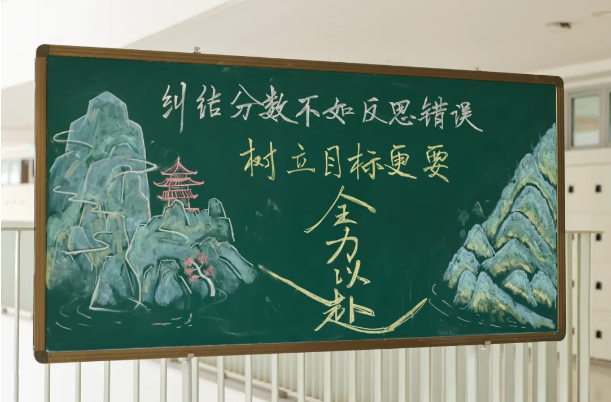 纠结分数不如反思错误
树立目标更要
全力以赴